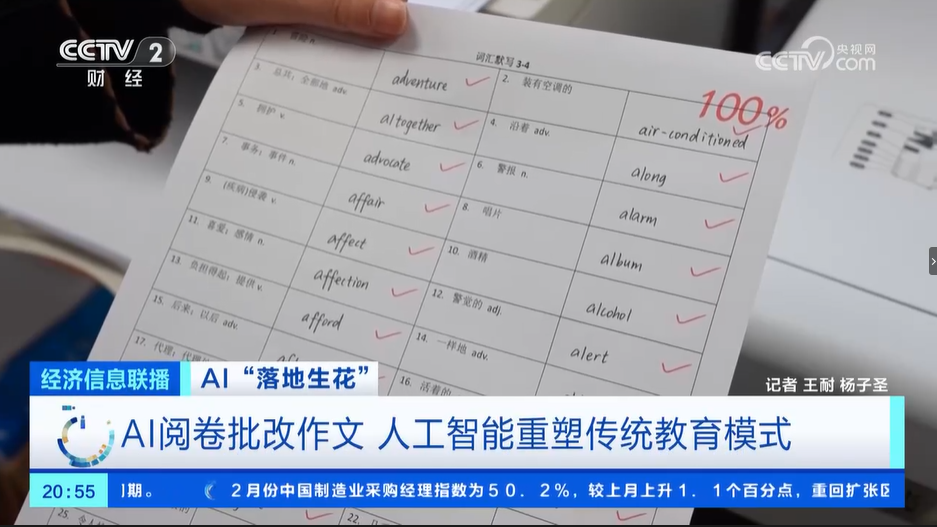 CCTV 2
财经
央视网
CCTV.com
词汇默写 3-4
100%
adventure
2. 装有空调的
air-conditioned
3. 总共；全部地 adv.
altogether
4. 沿着 adv.
along
5. 拥护 v.
advocate
6. 警报 n.
alarm
7. 事务；事件 n.
affair
8. 唱片
album
9. (疾病)侵袭 v.
affect
10. 酒精
alcohol
11. 喜爱；感情 n.
affection
12. 警觉的 adj.
alert
13. 负担得起；提供 v.
afford
14. 一样地 adv.
15. 后来；以后 adv.
16. 活着的
17. 代理；
22.
25.
记者 王耐 杨子圣
经济信息联播
AI“落地生花”
AI阅卷批改作文 人工智能重塑传统教育模式
20:55
期。 2月份中国制造业采购经理指数为50.2%，较上月上升1.1个百分点，重回扩张区